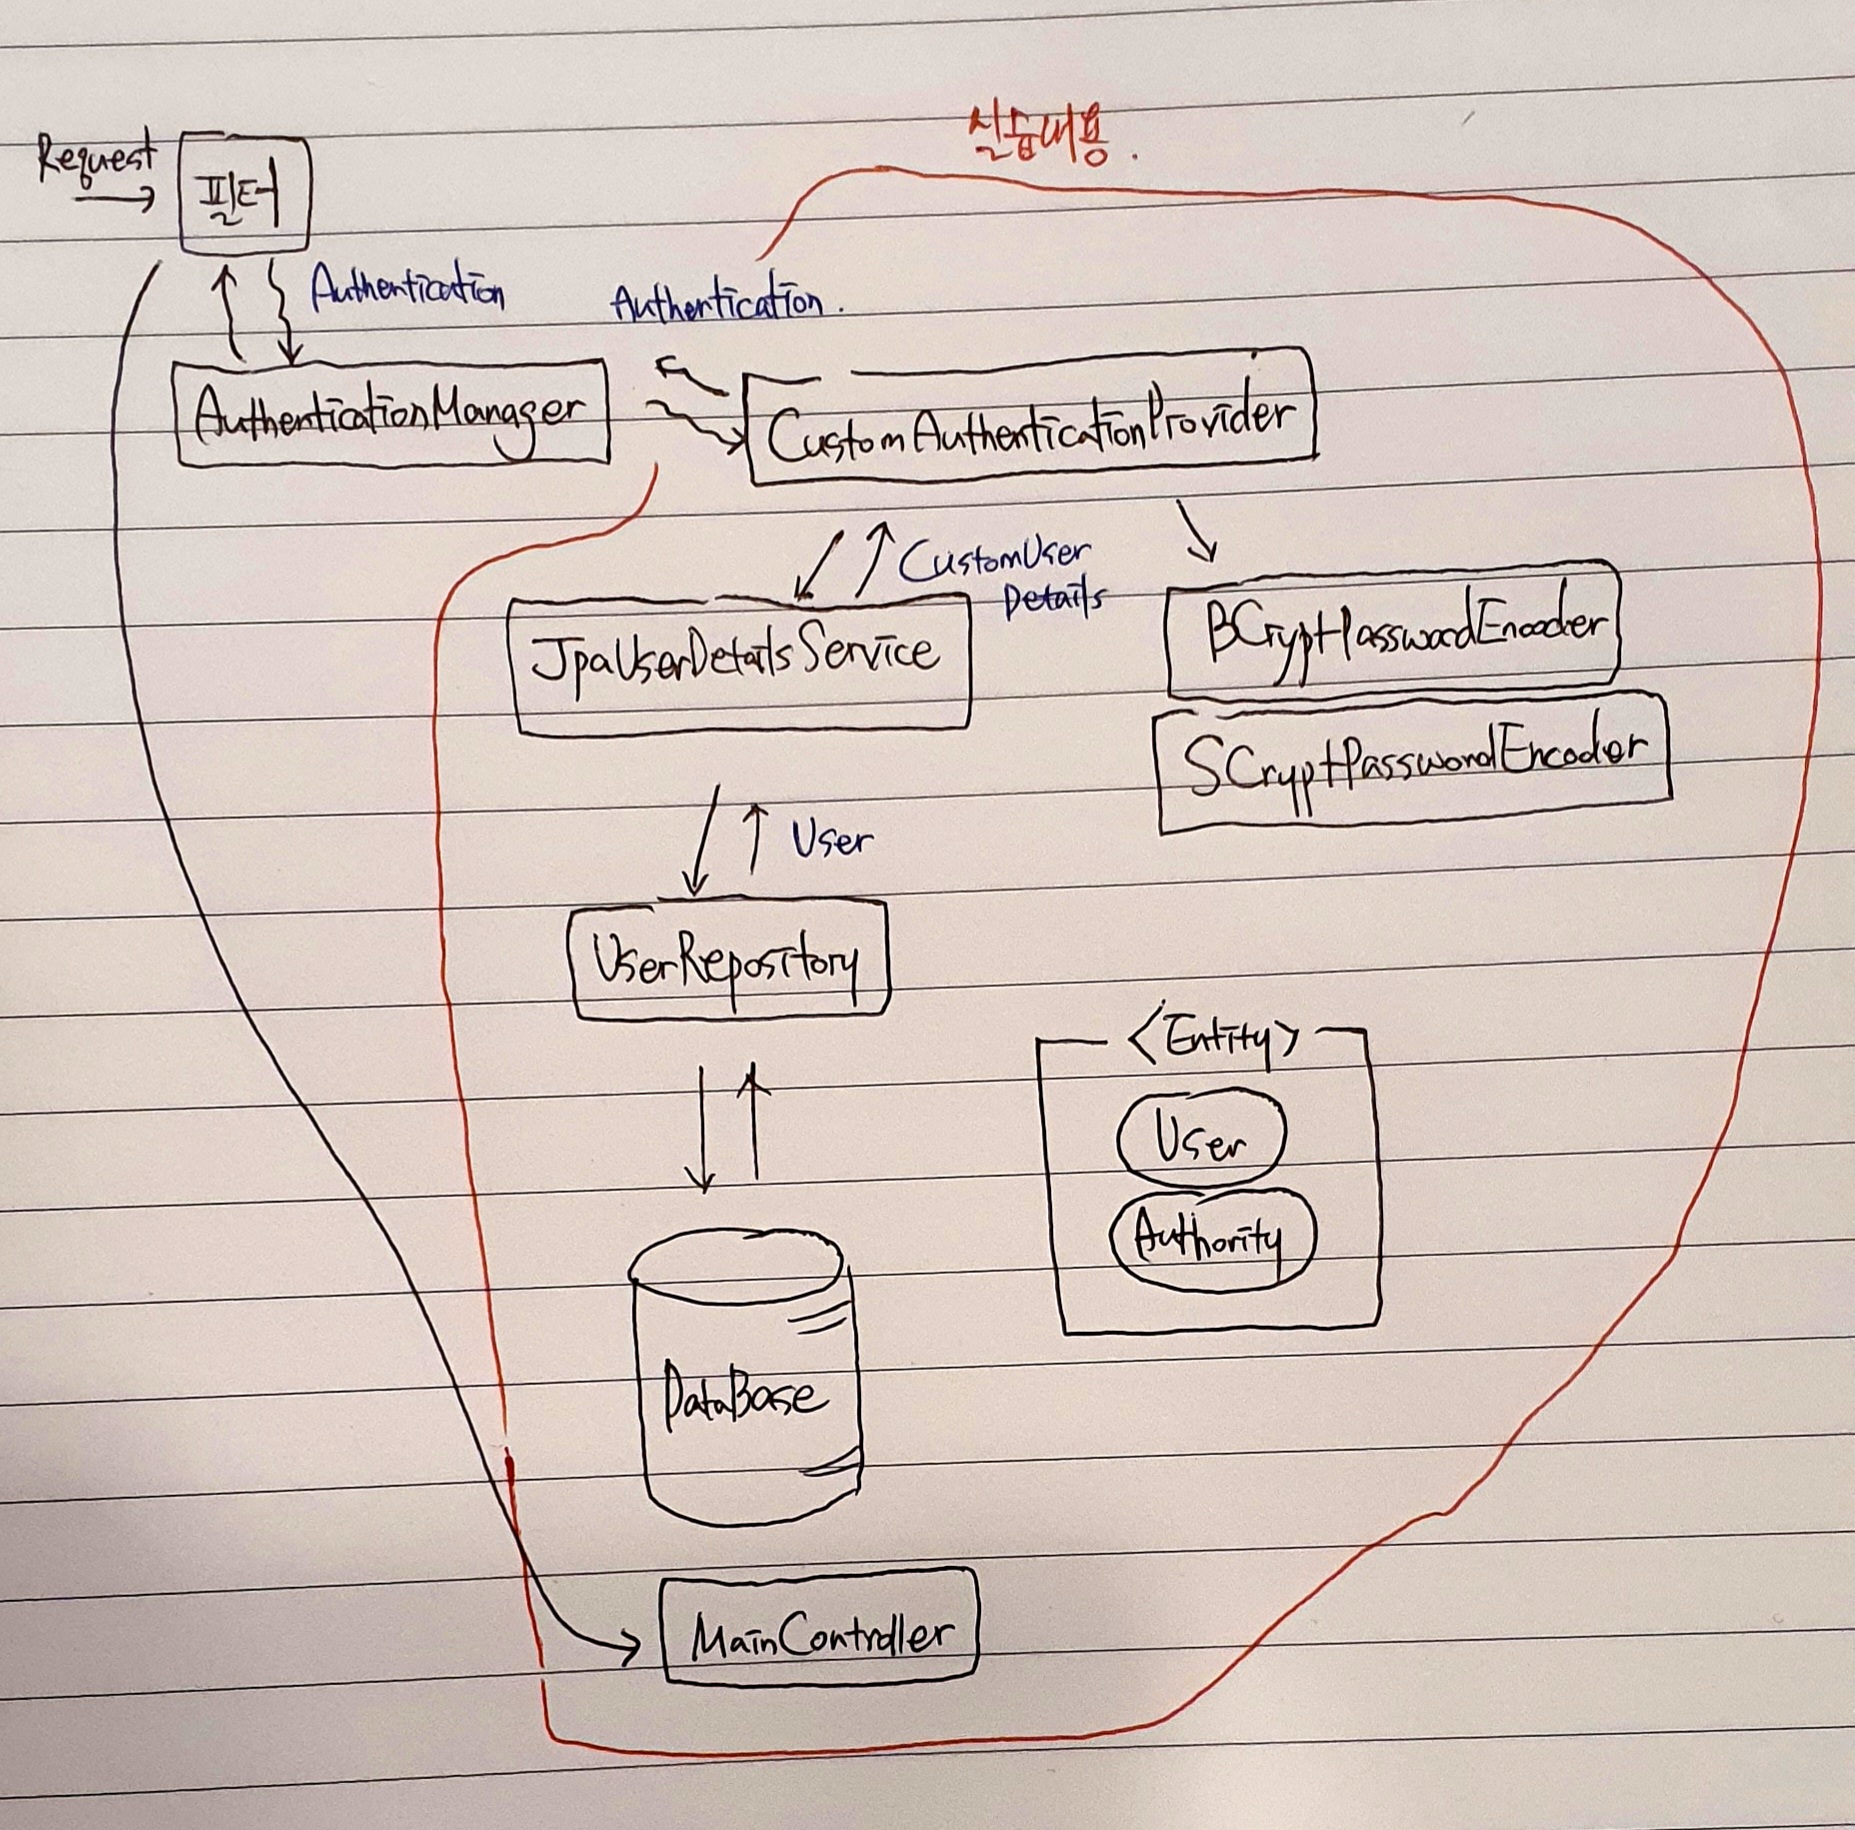 실습내용.
Request
필터
Authentication
Authentication.
AuthenticationManager
CustomAuthenticationProvider
CustomUser
Details
JpaUserDetailsService
BCryptPasswordEncoder
SCryptPasswordEncoder
User
UserRepository
<Entity>
User
Authority
DataBase
MainController